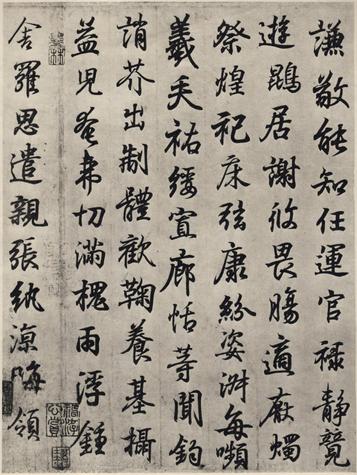 謙敬能知任運官祿靜竟
遊鵾居謝攸畏腸適厥燭
祭煌祀床弦康紛姿淑每嚬
羲矢祐綏宣廊恬等聞鈞
誚芥出制體歡鞠養基攝
益兒奄弗切滿槐兩浮鍾
舍羅思遣親張紈涼晦領